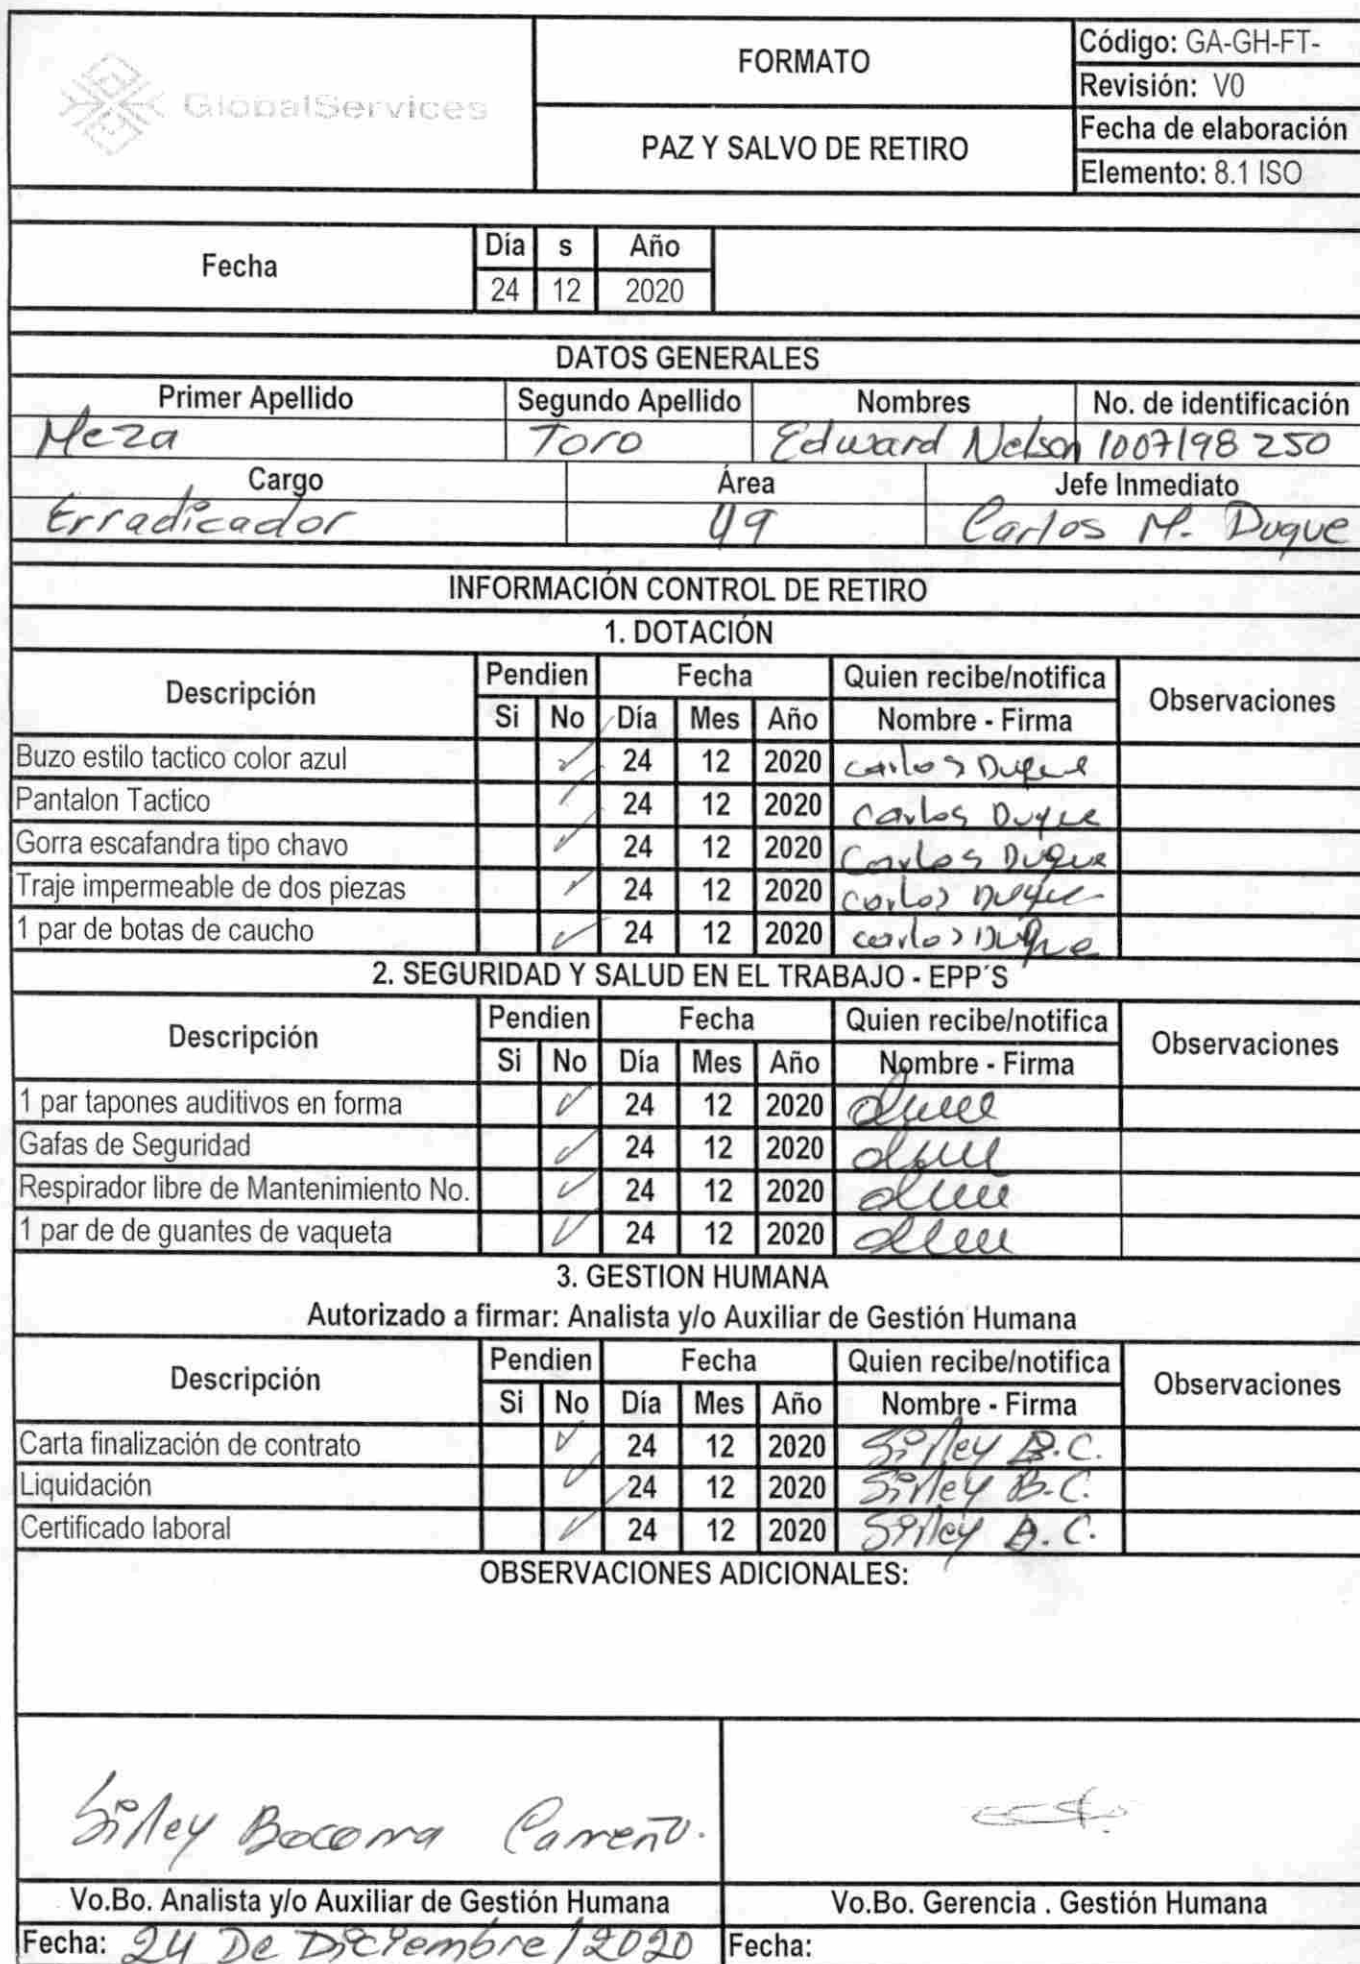 GlobalServices
FORMATO
PAZ Y SALVO DE RETIRO
Código: GA-GH-FT-
Revisión: V0
Fecha de elaboración
Elemento: 8.1 ISO
Fecha
Día s Año
24 12 2020
DATOS GENERALES
Primer Apellido Segundo Apellido Nombres No. de identificación
Meza Toro Edward Nelson 1007198250
Cargo Área Jefe Inmediato
Erradicador 49 Carlos M. Duque
INFORMACIÓN CONTROL DE RETIRO
1. DOTACIÓN
Descripción Pendien Fecha Quien recibe/notifica Observaciones
Si No Día Mes Año Nombre - Firma
Buzo estilo tactico color azul 24 12 2020 Carlos Duque
Pantalon Tactico 24 12 2020 Carlos Duque
Gorra escafandra tipo chavo 24 12 2020 Carlos Duque
Traje impermeable de dos piezas 24 12 2020 Carlos Duque
1 par de botas de caucho 24 12 2020 Carlos Duque
2. SEGURIDAD Y SALUD EN EL TRABAJO - EPP´S
Descripción Pendien Fecha Quien recibe/notifica Observaciones
Si No Día Mes Año Nombre - Firma
1 par tapones auditivos en forma 24 12 2020
Gafas de Seguridad 24 12 2020
Respirador libre de Mantenimiento No. 24 12 2020
1 par de de guantes de vaqueta 24 12 2020
3. GESTION HUMANA
Autorizado a firmar: Analista y/o Auxiliar de Gestión Humana
Descripción Pendien Fecha Quien recibe/notifica Observaciones
Si No Día Mes Año Nombre - Firma
Carta finalización de contrato 24 12 2020 Sirley B.C.
Liquidación 24 12 2020 Sirley B.C.
Certificado laboral 24 12 2020 Sirley B.C.
OBSERVACIONES ADICIONALES:
Sirley Bocorra Carreño.
Vo.Bo. Analista y/o Auxiliar de Gestión Humana Vo.Bo. Gerencia . Gestión Humana
Fecha: 24 De Diciembre/2020 Fecha: